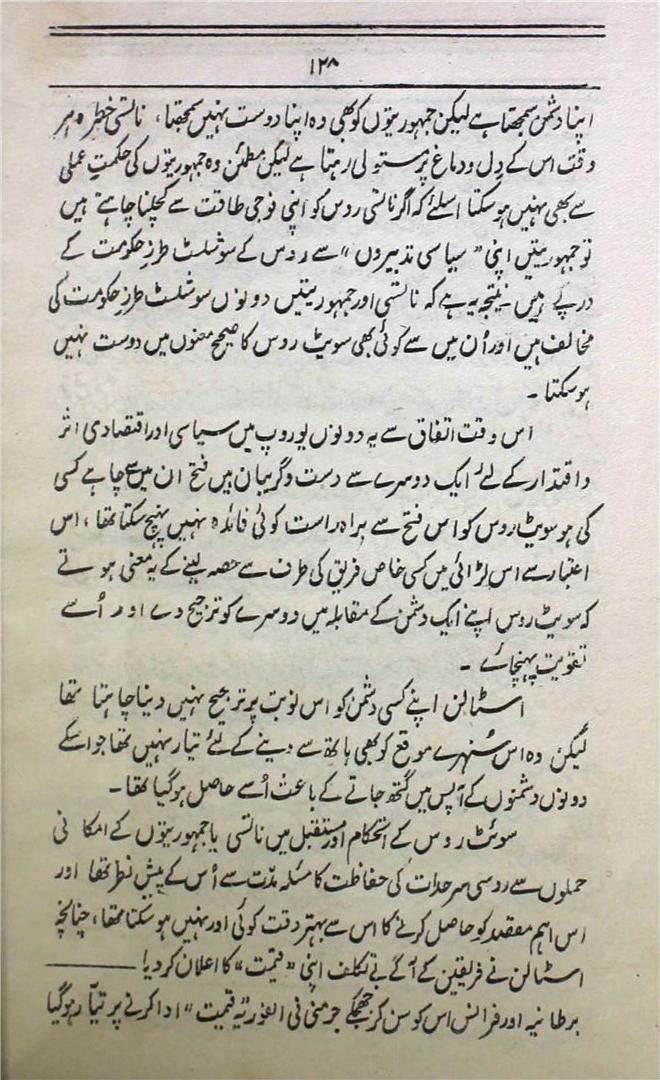 ۱۲۸
اپنا دشمن سمجھتا ہے لیکن جمہوریتوں کو بھی وہ اپنا دوست نہیں سمجھتا، ناتسی خطرہ ہر
وقت اس کے دل و دماغ پر مستولی رہتا ہے لیکن مطمئن وہ جمہوریتوں کی حکمت عملی
سے بھی نہیں ہو سکتا اسلئے کہ اگر ناتسی روس کو اپنی فوجی طاقت سے کچلنا چاہتے ہیں
تو جمہوریتیں اپنی "سیاسی تدبیروں" سے روس کے سوشلسٹ طرز حکومت کے
درپے ہیں۔ نتیجہ یہ ہے کہ ناتسی اور جمہوریتیں دونوں سوشلسٹ طرز حکومت کی
مخالف ہیں اور اُن میں سے کوئی بھی سویٹ روس کا صحیح معنوں میں دوست نہیں
ہو سکتا۔
اس وقت اتفاق سے یہ دونوں یوروپ میں سیاسی اور اقتصادی اثر
و اقتدار کے لئے ایک دوسرے سے دست و گریبان ہیں فتح ان میں سے چاہے کسی
کی ہو سویٹ روس کو اس فتح سے براہ راست کوئی فائدہ نہیں پہنچ سکتا تھا، اس
اعتبار سے اس لڑائی میں کسی خاص فریق کی طرف سے حصہ لینے کے یہ معنی ہوتے
کہ سویٹ روس اپنے ایک دشمن کے مقابلہ میں دوسرے کو ترجیح دے اور اُسے
تقویت پہنچائے۔
اسٹالن اپنے کسی دشمن کو اس نوبت پر ترجیح نہیں دینا چاہتا تھا
لیکن وہ اس سُنہرے موقع کو بھی ہاتھ سے دینے کے لئے تیار نہیں تھا جو اسکے
دونوں دشمنوں کے آپس میں گتھ جانے کے باعث اُسے حاصل ہو گیا تھا۔
سوئٹ روس کے استحکام اور مستقبل میں ناتسی یا جمہوریتوں کے امکانی
حملوں سے روسی سرحدات کی حفاظت کا مسئلہ مدّت سے اُس کے پیش نظر تھا اور
اس اہم مقصد کو حاصل کرنے کا اس سے بہتر وقت کوئی اور نہیں ہو سکتا تھا، چنانچہ
اسٹالن نے فریقین کے آگے بے تکلف اپنی "قیمت" کا اعلان کر دیا!
برطانیہ اور فرانس اس کو سن کر جھجکے جرمنی فی الفور یہ "قیمت" ادا کرنے پر تیار ہو گیا